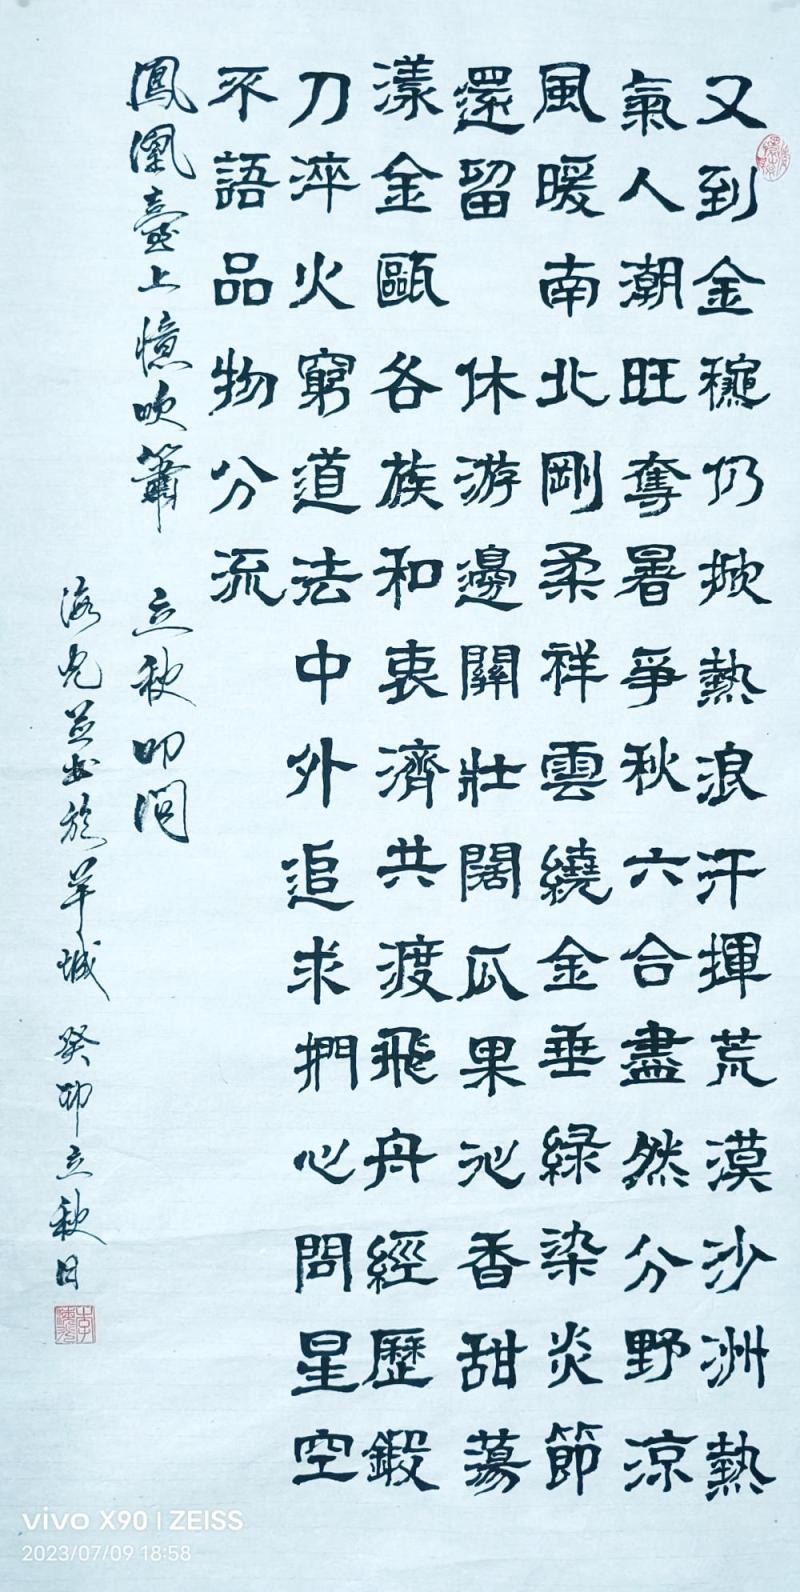 又到金穐仍掀熱浪汗揮荒漠沙洲熱
氣人潮旺奪暑爭秋六合盡然分野涼
風暖南北剛柔祥雲繞金垂綠染炎節
還留 休游邊關壯闊瓜果沁香甜蕩
漾金甌各族和衷濟共渡飛舟經歷鍛
刀淬火窮道法中外追求捫心問星空
不語品物分流
鳳凰臺上憶吹簫 立秋叩問
海光並書於羊城 癸卯立秋日
vivo X90 | ZEISS
2023/07/09 18:58